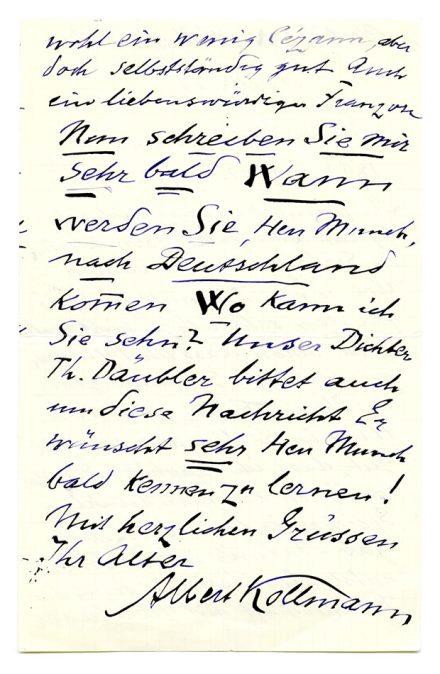 wohl ein wenig Cézann, aber
doch selbstständig gut Auch
ein liebenswürdiger Franzose
Nun schreiben Sie mir
sehr bald Wann
werden Sie, Herr Munch,
nach Deutschland
kom̅en Wo kann ich
Sie sehn? Unser Dichter
Th. Däubler bittet auch
um diese Nachricht Er
wünscht sehr Herr Munch
bald kennen zu lernen!
Mit herzlichen Grüssen
Ihr Alter
Albert Kollmann